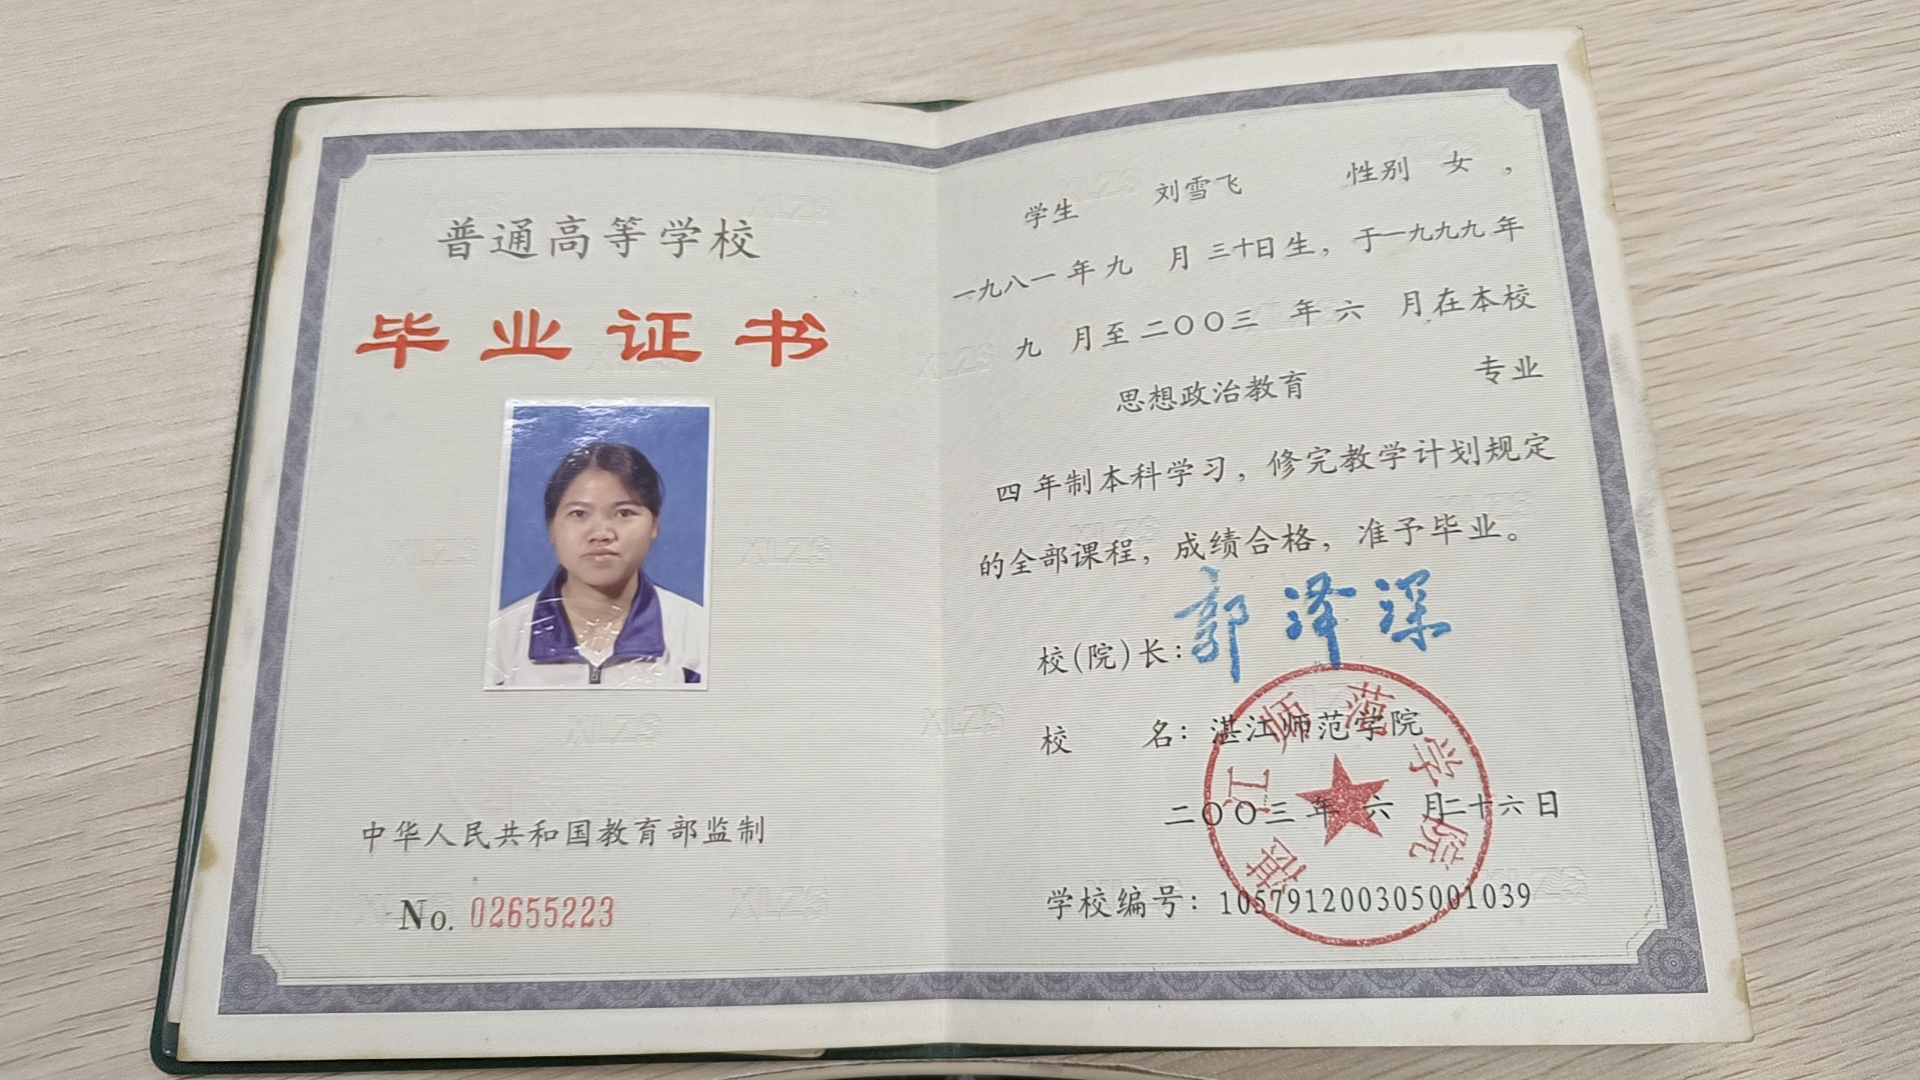 普通高等学校
毕业证书
中华人民共和国教育部监制
No. 02655223
学生 刘雪飞 性别 女，
一九八一年九 月三十日生，于一九九九年
九 月至二〇〇三 年六 月在本校
思想政治教育 专业
四年制本科学习，修完教学计划规定
的全部课程，成绩合格，准予毕业。
校(院)长：郭泽深
校 名：湛江师范学院
二〇〇三年六 月二十六日
学校编号：105791200305001039
湛江师范学院
XLZS